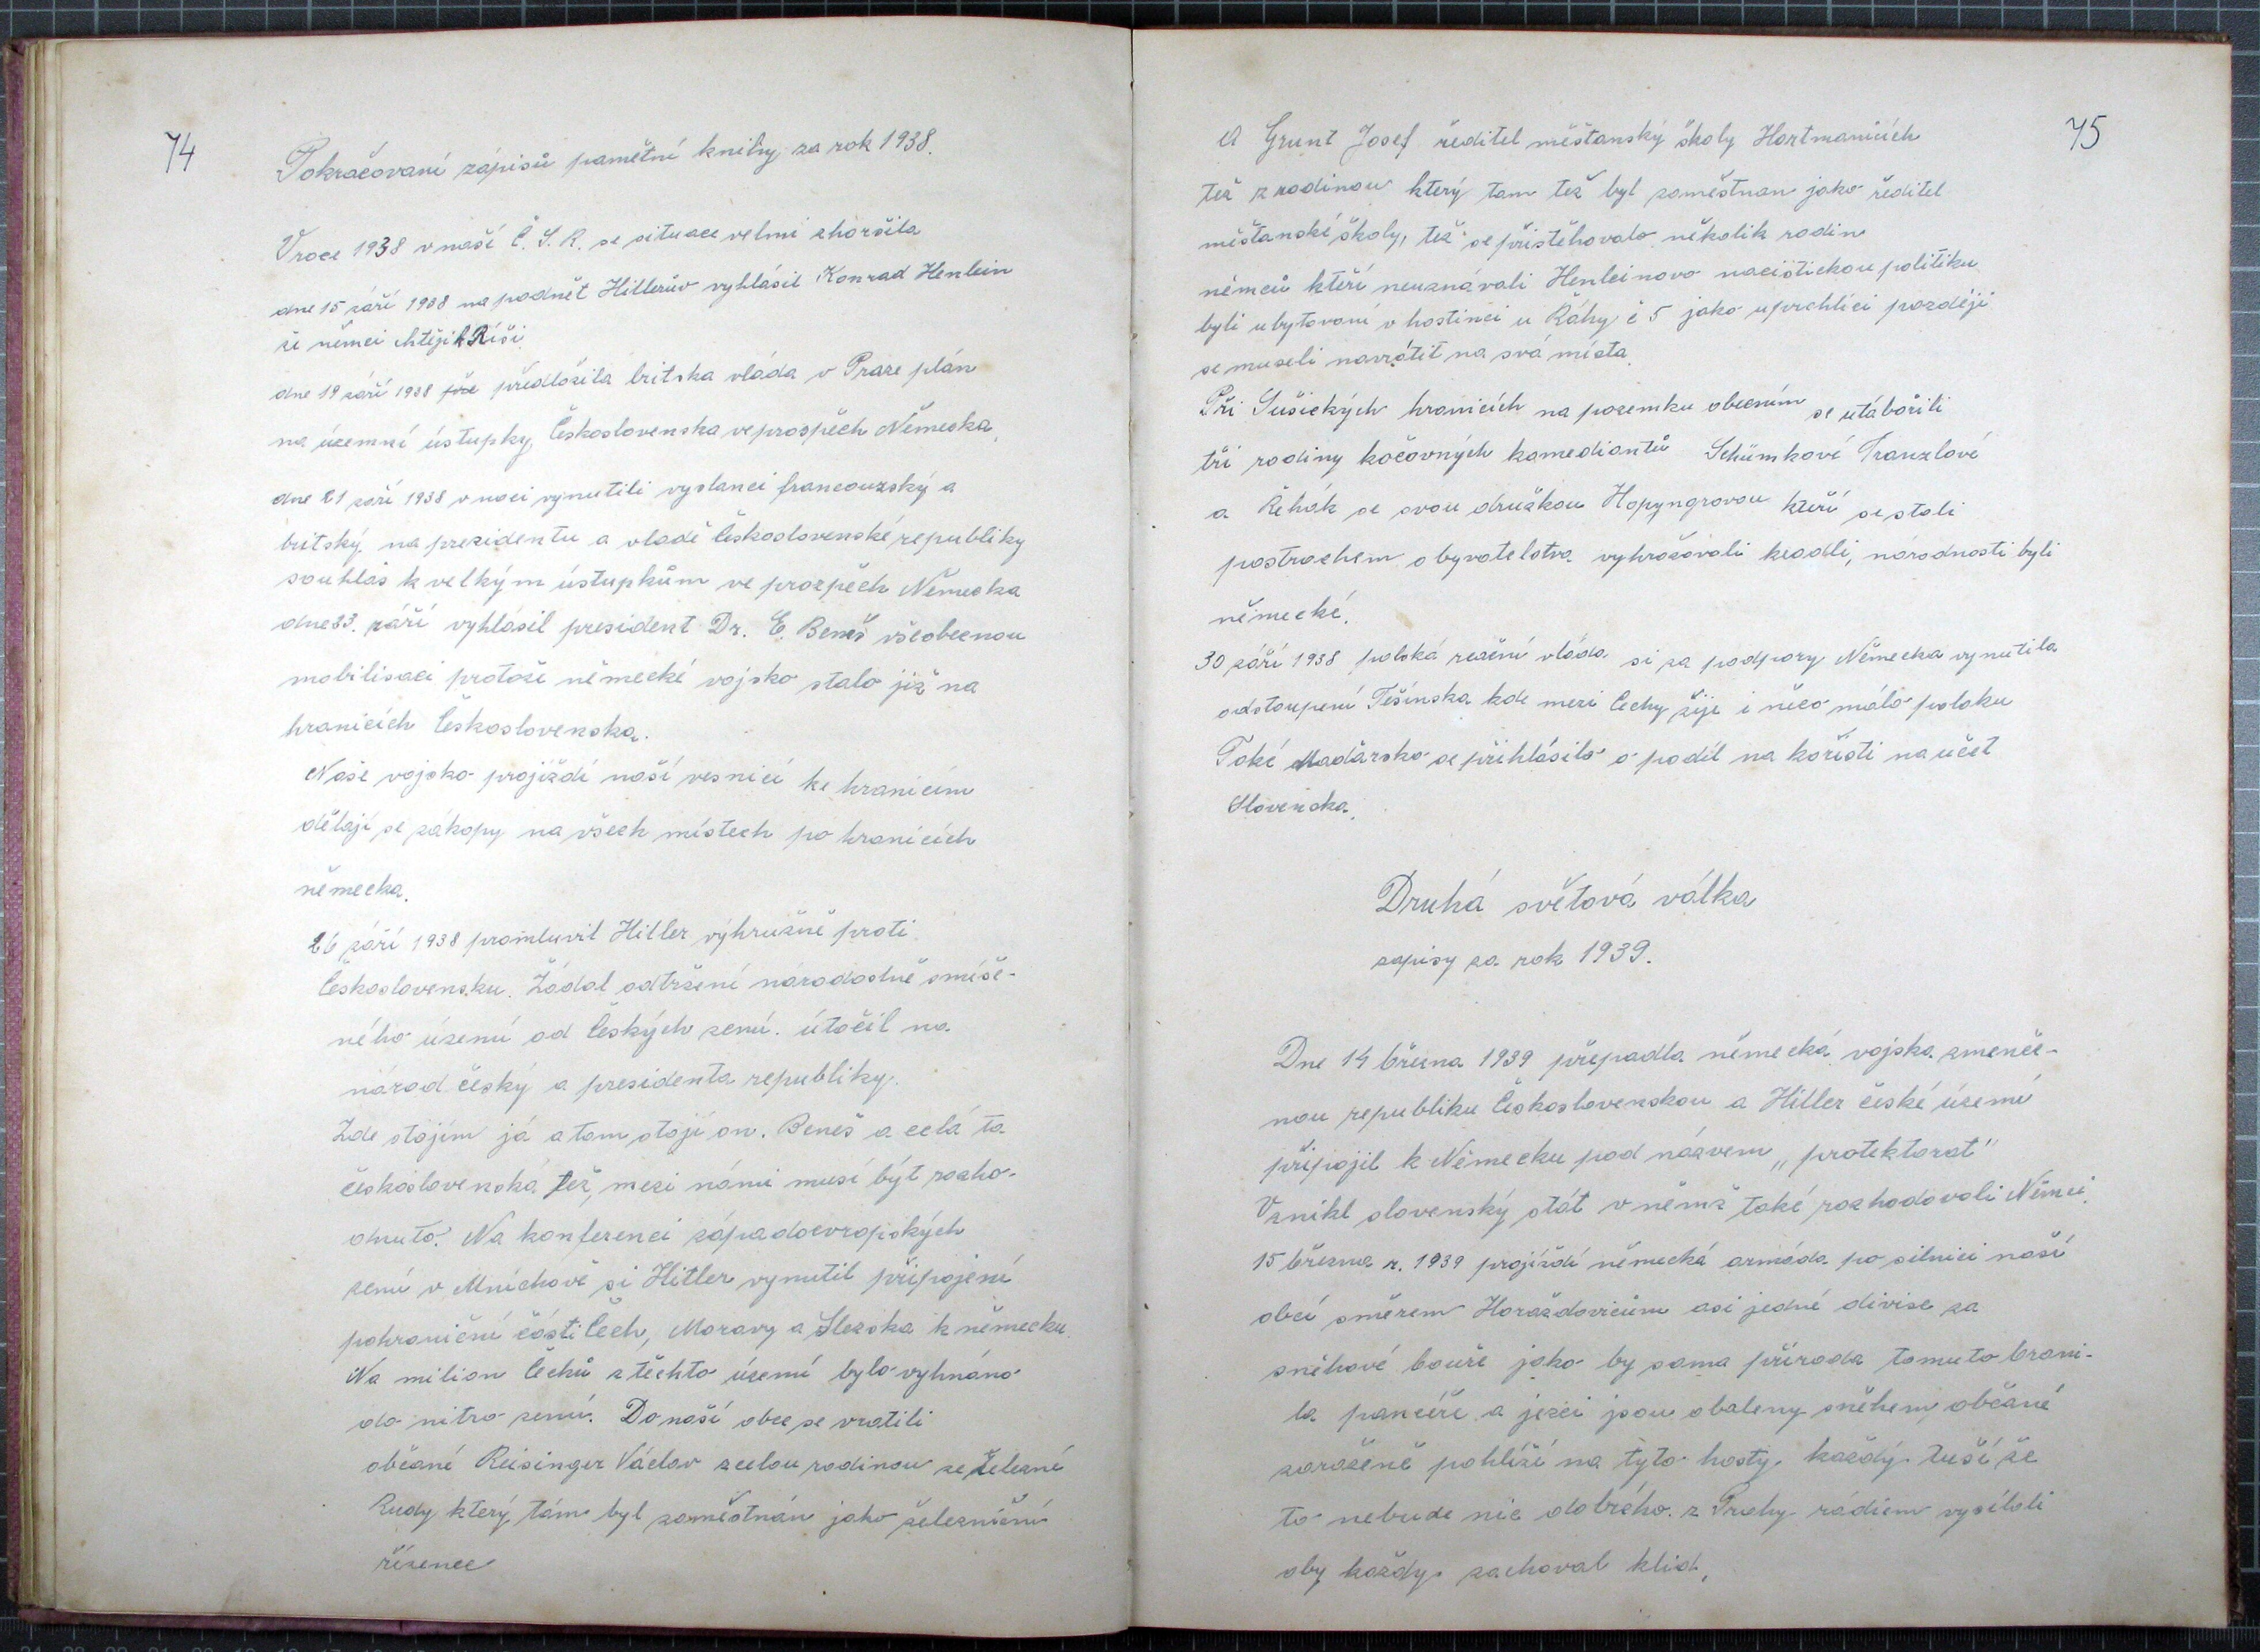 74
Pokračovaní zápisů pamětní knihy za rok 1938.
V roce 1938 v naší Č. S. R. se situace velmi zhoršila
dne 15 září 1938 na podnět Hitlerův vyhlásil Konrad Henlein
že němci chtějí k Říši.
dne 19 září 1938 pře předložila britska vláda v Praze plán
na územní ústupky, Československa ve prospěch Německa,
dne 21 září 1938 v noci vynutili vyslanci francouzský a
britský, na prezidentu a vladě Československé republiky
souhlas k velkým ústupkům ve prospěch Německa
dne 23. září vyhlásil president Dr. E. Beneš všeobecnou
mobilisaci protože německé vojsko stalo již na
hranicích Československa.
Naše vojsko projíždí naší vesnicí ke hranicím
dělají se zákopy na všech místech po hranicích
německa.
26 září 1938 promluvil Hitler výhružně proti
Československu. Žádal odtržení národostně smíše-
ného území od Českých zemí. útočil na
národ český a presidenta republiky.
Zde stojím já a tam stojí on. Beneš a celá ta
československá též, mezi námi musí být rozho-
dnuto. Na konferenci západoevropských
zemí v Mnichově si Hitler vynutil připojení
pohraniční části Čech, Moravy a Slezska k německu.
Na milion Čechů z těchto území bylo vyhnáno
do nitra zemí. Do naší obce se vratili
občané Reisinger Václav z celou rodinou ze Železné
Rudy který tám byl zaměstnán jako železniční
řízenec
75
A Grunt Josef ředitel měšťanský školy Hartmanicích
též z rodinou který tam též byl zaměstnan jako ředitel
měšťanské školy, též se přistěhovalo několik rodin
němců kteří neuznávali Henleinovo nacistickou politiku
byli ubytovaní v hostinci u Ráhy č 5 jako uprchlíci později
se museli navrátit na svá místa.
Při Sušických hranicích na pozemku obecním se utábořili
tři rodiny kočovných komediantů Schümkové Franzlové
a Řehák se svou družkou Hopyngrovou kteří se stali
postrachem obyvatelstva vyhrožovali kradli, národnosti byli
německé.
30 září 1938 polská vláda si za podpory Německa vynutila
odstoupení Těšínska kde mezi Čechy žije i něco málo poloku
Také Maďarsko se přihlásilo o podíl na kořisti na učet
Slovenska.
Druhá světová válka
zapisy za rok 1939.
Dne 14 března 1939 přepadla německá vojska zmenče-
nou republiku Československou a Hitler české území
připojil k Německu pod názvem „protektorat"
Vznikl slovenský stát v němž také rozhodovali Němci.
15 března r. 1939 projíždí německá armáda po silnici naší
obcí směrem Horažďovicům asi jedné divise za
sněhové bouře jako by sama příroda tomuto brani-
la pancéře a jezci jsou obaleny sněhem, občané
zaraženě pohlíží na tyto hosty, každý tuší že
to nebude nic dobrého. z Prahy rádiem vysílali
aby každy zachoval klid,